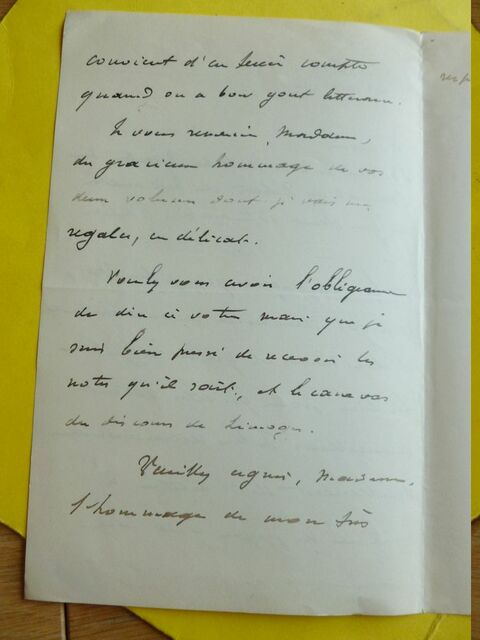 convient d'en tenir compte
quand on a bon gout littéraire.
Je vous remercie, Madame,
du gracieux hommage de vos
deux volumes dont je vais me
régaler, en délicat.
Veuillez vous avoir l'obligeance
de dire à votre mari que je
suis bien pressé de recevoir les
notes qu'il sait, et le canevas
du discours de Limoges.
Veuillez agréer, Madame,
l'hommage de mon très